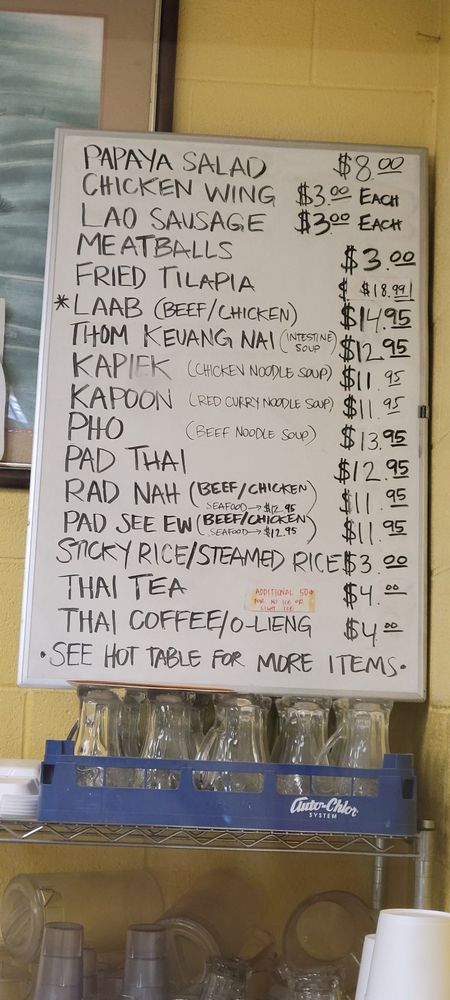 PAPAYA SALAD $8.00
CHICKEN WING $3.00 EACH
LAO SAUSAGE $3.00 EACH
MEATBALLS $3.00
FRIED TILAPIA $ $18.99
*LAAB (BEEF/CHICKEN) $14.95
THOM KEUANG NAI (INTESTINE SOUP) $12.95
KAPIEK (CHICKEN NOODLE SOUP) $11.95
KAPOON (RED CURRY NOODLE SOUP) $11.95
PHO (BEEF NOODLE SOUP) $13.95
PAD THAI $12.95
RAD NAH (BEEF/CHICKEN) $11.95
SEAFOOD → $12.95
PAD SEE EW (BEEF/CHICKEN) $11.95
SEAFOOD → $12.95
STICKY RICE/STEAMED RICE $3.00
THAI TEA $4.00
ADDITIONAL 50¢
FOR NO ICE OR
LIGHT ICE
THAI COFFEE/O-LIENG $4.00
•SEE HOT TABLE FOR MORE ITEMS•
Auto-Chlor
SYSTEM